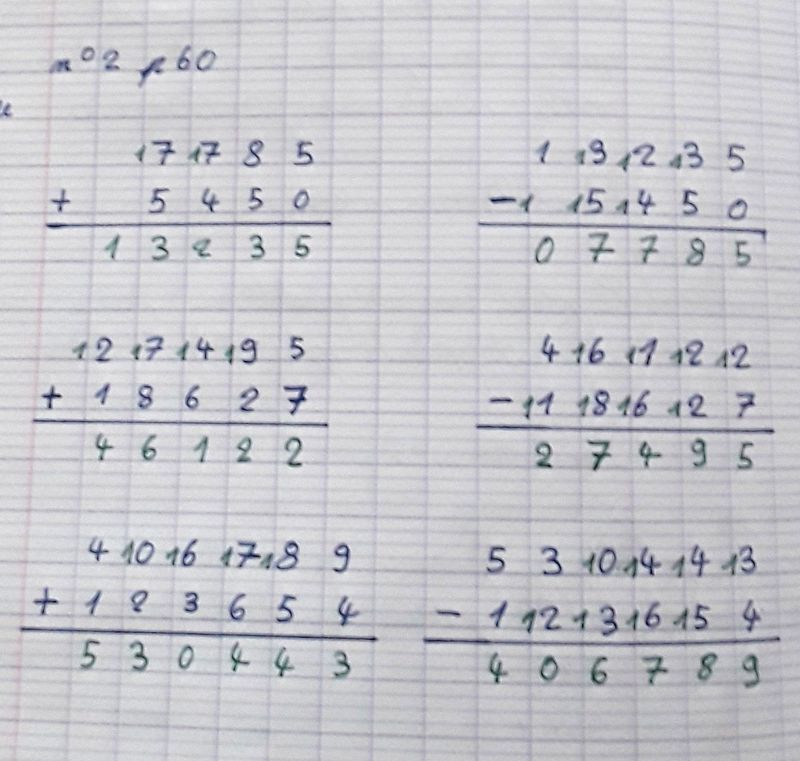 n°2 p60
17 17 8 5
+ 5 4 5 0
1 3 2 3 5
1 13 12 13 5
-1 15 14 5 0
0 7 7 8 5
12 17 14 19 5
+ 1 8 6 2 7
4 6 1 2 2
4 16 11 12 12
-11 18 16 12 7
2 7 4 9 5
4 10 16 17 18 9
+ 1 2 3 6 5 4
5 3 0 4 4 3
5 3 10 14 14 13
- 1 12 13 16 15 4
4 0 6 7 8 9